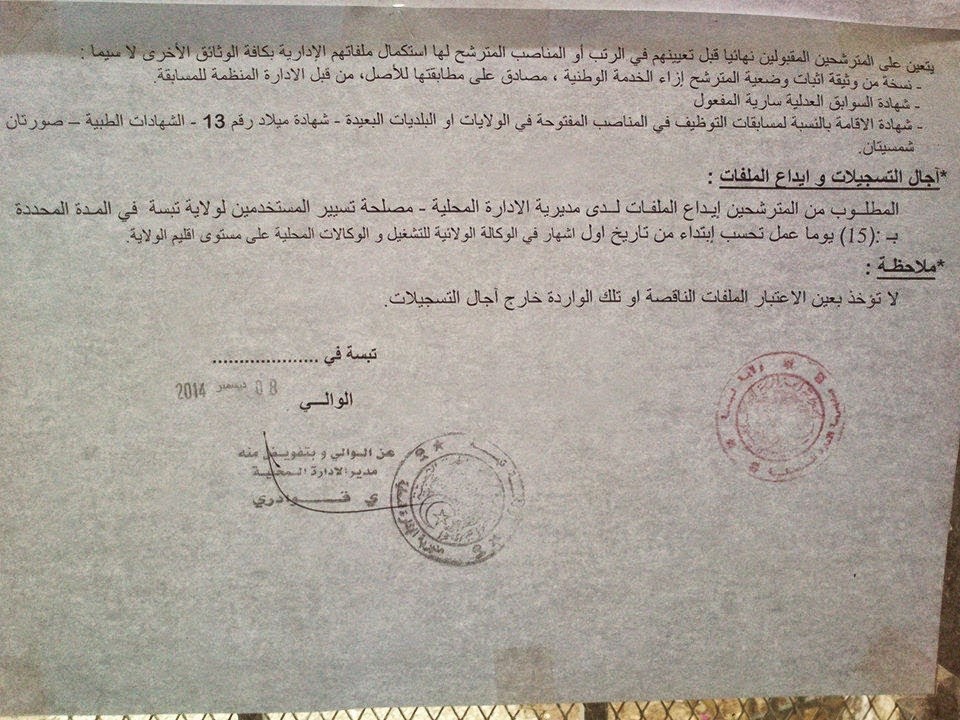 يتعين على المترشحين المقبولين نهائيا قبل تعيينهم في الرتب أو المناصب المترشح لها استكمال ملفاتهم الإدارية بكافة الوثائق الأخرى لا سيما :
- نسخة من وثيقة اثبات وضعية المترشح إزاء الخدمة الوطنية ، مصادق على مطابقتها للأصل، من قبل الادارة المنظمة للمسابقة.
- شهادة السوابق العدلية سارية المفعول
- شهادة الاقامة بالنسبة لمسابقات التوظيف في المناصب المفتوحة في الولايات او البلديات البعيدة - شهادة ميلاد رقم 13 - الشهادات الطبية – صورتان
شمسيتان.
*آجال التسجيلات و ايداع الملفات :
المطلــوب من المترشحين إيـداع الملفات لـدى مديرية الادارة المحلية - مصلحة تسيير المستخدمين لولاية تبسة في المـدة المحددة
بـ :(15) يوما عمل تحسب إبتداء من تاريخ اول اشهار في الوكالة الولائية للتشغيل و الوكالات المحلية على مستوى اقليم الولاية.
*ملاحظـة :
لا تؤخذ بعين الاعتبار الملفات الناقصة او تلك الواردة خارج آجال التسجيلات.
تبسة في ....................
08 ديسمبر 2014
الوالــي
عن الوالي و بتفويض منه
مدير الادارة المحلية